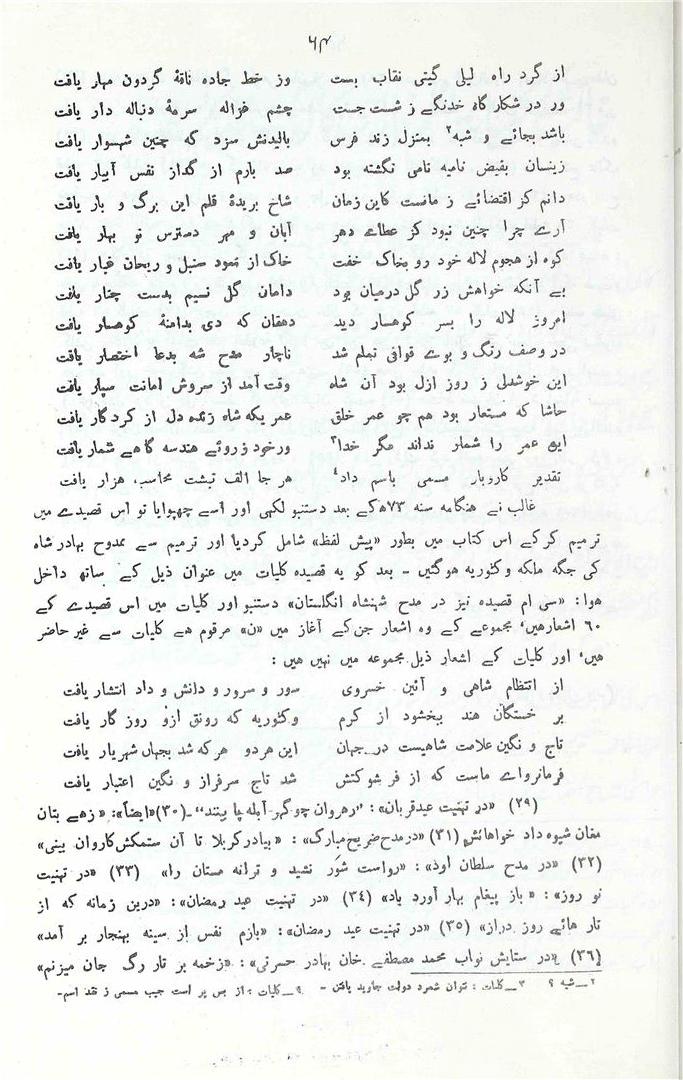 ۶۴
از گرد راه لیلی گیتی نقاب بست وز خط جاده ناقۀ گردون مہار یافت
ور در شکار گاہ خدنگے ز شست جست چشم غزالہ سرمۀ دنبالہ دار یافت
باشد بجائے و شبہ۲ بمنزل زند فرس بالیدنش سزد کہ چنین شہسوار یافت
زینسان بفیض نامیہ نامی نگشتہ بود صد بارم از گداز نفس آبیار یافت
دانم کز اقتضائے ز مانست کاین زمان شاخ بریدۀ قلم این برگ و بار یافت
آرے چرا چنین نبود کز عطاے دهر آبان و مہر دسترس نو بہار یافت
کوہ از هجوم لالہ خود رو بخاک خفت خاک از نمود سنبل و ریحان غبار یافت
بے آنکہ خواهش زر گل درمیان بود دامان گل نسیم بدست چنار یافت
امروز لالہ را بسر کوهسار دید دهقان کہ دی بدامنۀ کوهسار یافت
در وصف رنگ و بوے قوافی تمام شد ناچار مدح شہ بدعا اختصار یافت
این خوشدلی ز روز ازل بود آن شاہ وقت آمد از سروش امانت سپار یافت
حاشا کہ مستعار بود هم چو عمر خلق عمریکہ شاہ زندہ دل از کردگار یافت
این عمر را شمار نداند مگر خدا۳ ورخود ز روئے هندسہ گاهے شمار یافت
تقدیر کاروبار مسمی باسم داد۴ هر جا الف نبشت محاسب، هزار یافت
غالب نے هنگامہ سنہ ۷۳ھ کے بعد دستنبو لکھی اور اسے چھپوایا تو اس قصیدے میں
ترمیم کرکے اس کتاب میں بطور «پیش لفظ» شامل کردیا اور ترمیم سے ممدوح بہادر شاہ
کی جگہ ملکہ وکٹوریہ هوگئیں - بعد کو یہ قصیدہ کلیات میں عنوان ذیل کے ساتھ داخل
هوا: «سی ام قصیدہ نیز در مدح شہنشاہ انگلستان» دستنبو اور کلیات میں اس قصیدے کے
۶۰ اشعار هیں، مجموعے کے وہ اشعار جن کے آغاز میں «ن» مرقوم هے کلیات سے غیر حاضر
هیں، اور کلیات کے اشعار ذیل مجموعہ میں نہیں هیں :
از انتظام شاهی و آئین خسروی سور و سرور و دانش و داد انتشار یافت
بر خستگان هند ببخشود از کرم وکٹوریہ کہ رونق ازو روز گار یافت
تاج و نگین علامت شاهیست در جہان این هر دو هر کہ شد بجہان شہریار یافت
فرمانرواے ماست کہ از فر شوکتش شد تاج سرفراز و نگین اعتبار یافت
(۲۹) «در تہنیت عید قربان»: "رهروان چو گہر آبلہ پا بینند" - (۳۰) «ایضاً»: «زهے بتان
مغان شیوہ داد خواهانش (۳۱) «در مدح ضریح مبارک» : «بیا در کربلا تا آن ستمکش کاروان بینی»
(۳۲) «در مدح سلطان اودہ» : «رواست شور نشید و ترانہ مستان را» (۳۳) «در تہنیت
نو روز» : «باز پیغام بہار آورد باد» (۳۴) «در تہنیت عید رمضان» : «درین زمانہ کہ از
تار هائے روز دراز» (۳۵) «در تہنیت عید رمضان» : «بازم نفس از سینہ بہنجار بر آمد»
(۳۶) «در ستایش نواب محمد مصطفے خان بہادر حسرتی» : «زخمہ بر تار رگ جان میزنم»
۲ــ شبہ ؟ ۳ــ کلیات : نتوان شمرد دولت جاوید یافتن - ۴ــ کلیات : از بس پر است جیب مسمی ز نقد اسم-